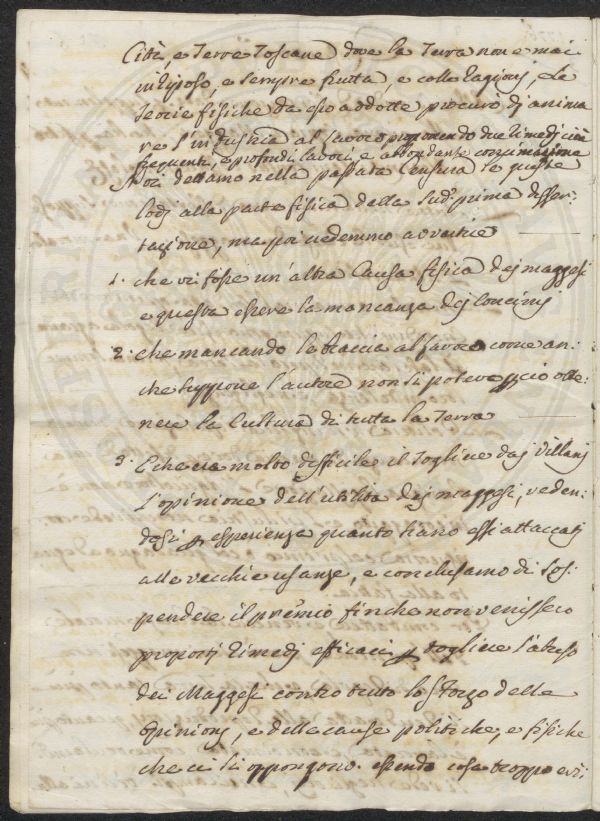 Città, e Terre Toscane dove la Terra non è mai
in riposo, e sempre frutta, e colle ragioni, le
teorie fisiche da esso addotte procurò di anima
re l'industria al lavoro proponendo due rimedj cioè
frequenti, e profondi lavori, e abbondante concimazione
Noi dettamo nella passata Censura le giuste
lodi alla parte fisica della sud.ª prima disser-
tazione, ma poi vedemmo avvertire
1. che vi fosse un'altra Causa fisica dej maggesi
e questa essere la mancanza dej Concimj
2. che mancando le braccia al lavoro come an-
che suppone l'autore non si poteva perciò otte-
nere la Cultura di tutta la Terra
3. E che era molto difficile il togliere daj Villanj
l'opinione dell'utilità dej maggesi, veden-
dosi p esperienza quanto siano essi attaccati
alle vecchie usanze, e conchiusamo di sos-
pendere il premio finche non venissero
proposti rimedj efficaci p togliere l'abuso
dei Maggesi contro tutto lo sforzo delle
Opinionj, e delle cause politiche, e fisiche
che ci si oppongono. essendo cosa troppo evi-